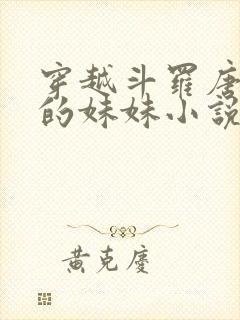 穿越斗羅唐
的妹妹小說
黄克慶